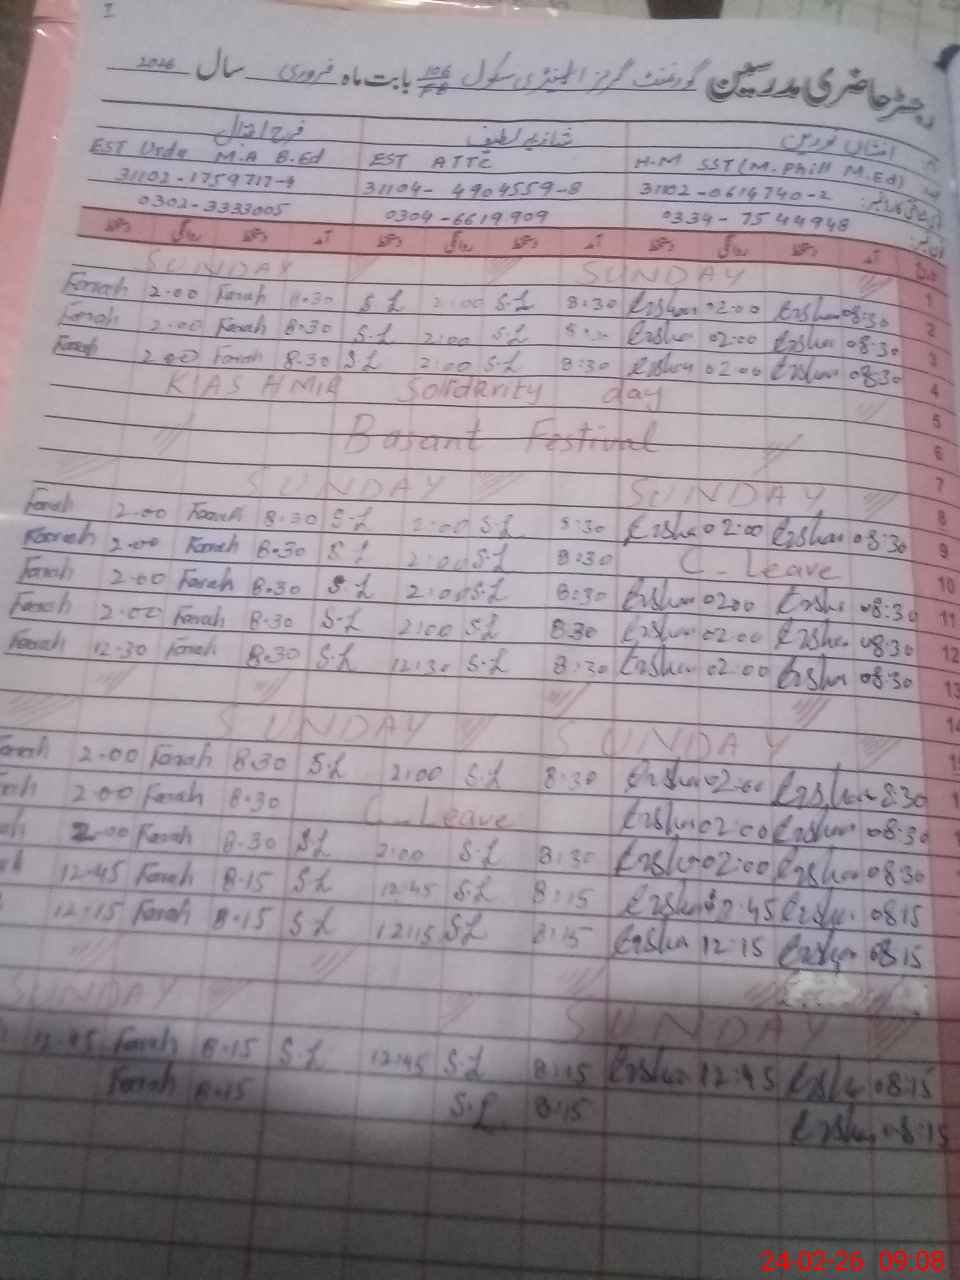 I
رجسٹر حاضری مدرسین گورنمنٹ گرلز ایلیمنٹری سکول 106/7R بابت ماہ فروری سال 2026
افشاں نورین شازیہ لطیف فرح اقبال
EST Urdu M.A B.Ed EST ATTC H.M SST (M.Phill M.Ed)
31102-1759717-4 31104-4904559-8 31102-0614740-2
0302-3333005 0304-6619909 0334-7544948
آمد دستخط روانگی دستخط آمد دستخط روانگی دستخط آمد دستخط روانگی دستخط
SUNDAY SUNDAY 1
Farah 2.00 Farah 8.30 S.L 2:00 S.L 8:30 02:00 08:30 2
Farah 2.00 Farah 8.30 S.L 2:00 S.L 02:00 08:30 3
Farah 2.00 Farah 8.30 S.L 2:00 S.L 8:30 02:00 08:30 4
KIASHMIR Solidarity day 5
Basant Festival 6
7
SUNDAY SUNDAY 8
Farah 2.00 Farah 8.30 S.L 2:00 S.L 8:30 02:00 08:30 9
Farah 2.00 Farah 8.30 S.L 2:00 S.L 8:30 C-Leave 10
Farah 2.00 Farah 8.30 S.L 2:00 S.L 8:30 0200 08:30 11
Farah 2.00 Farah 8.30 S.L 2:00 S.L 830 02:00 08:30 12
Farah 12.30 Farah 8.30 S.L 12:30 S.L 8:30 02:00 08:30 13
14
SUNDAY SUNDAY
Farah 2.00 Farah 8.30 S.L 2:00 S.L 8:30 02:00 8:30
2.00 Farah 8.30 C-Leave 02:00 08:30
2.00 Farah 8.30 S.L 2:00 S.L 8:30 02:00 08:30
12.45 Farah 8.15 S.L 12:45 S.L 8:15 2:45 0815
12:15 Farah 8.15 S.L 12:15 S.L 8:15 12:15 08:15
SUNDAY SUNDAY
12.45 Farah 8.15 S.L 12:45 S.L 8:15 12:45 08:15
Farah 8.15 S.L 8:15 08:15
24-02-26 09:08